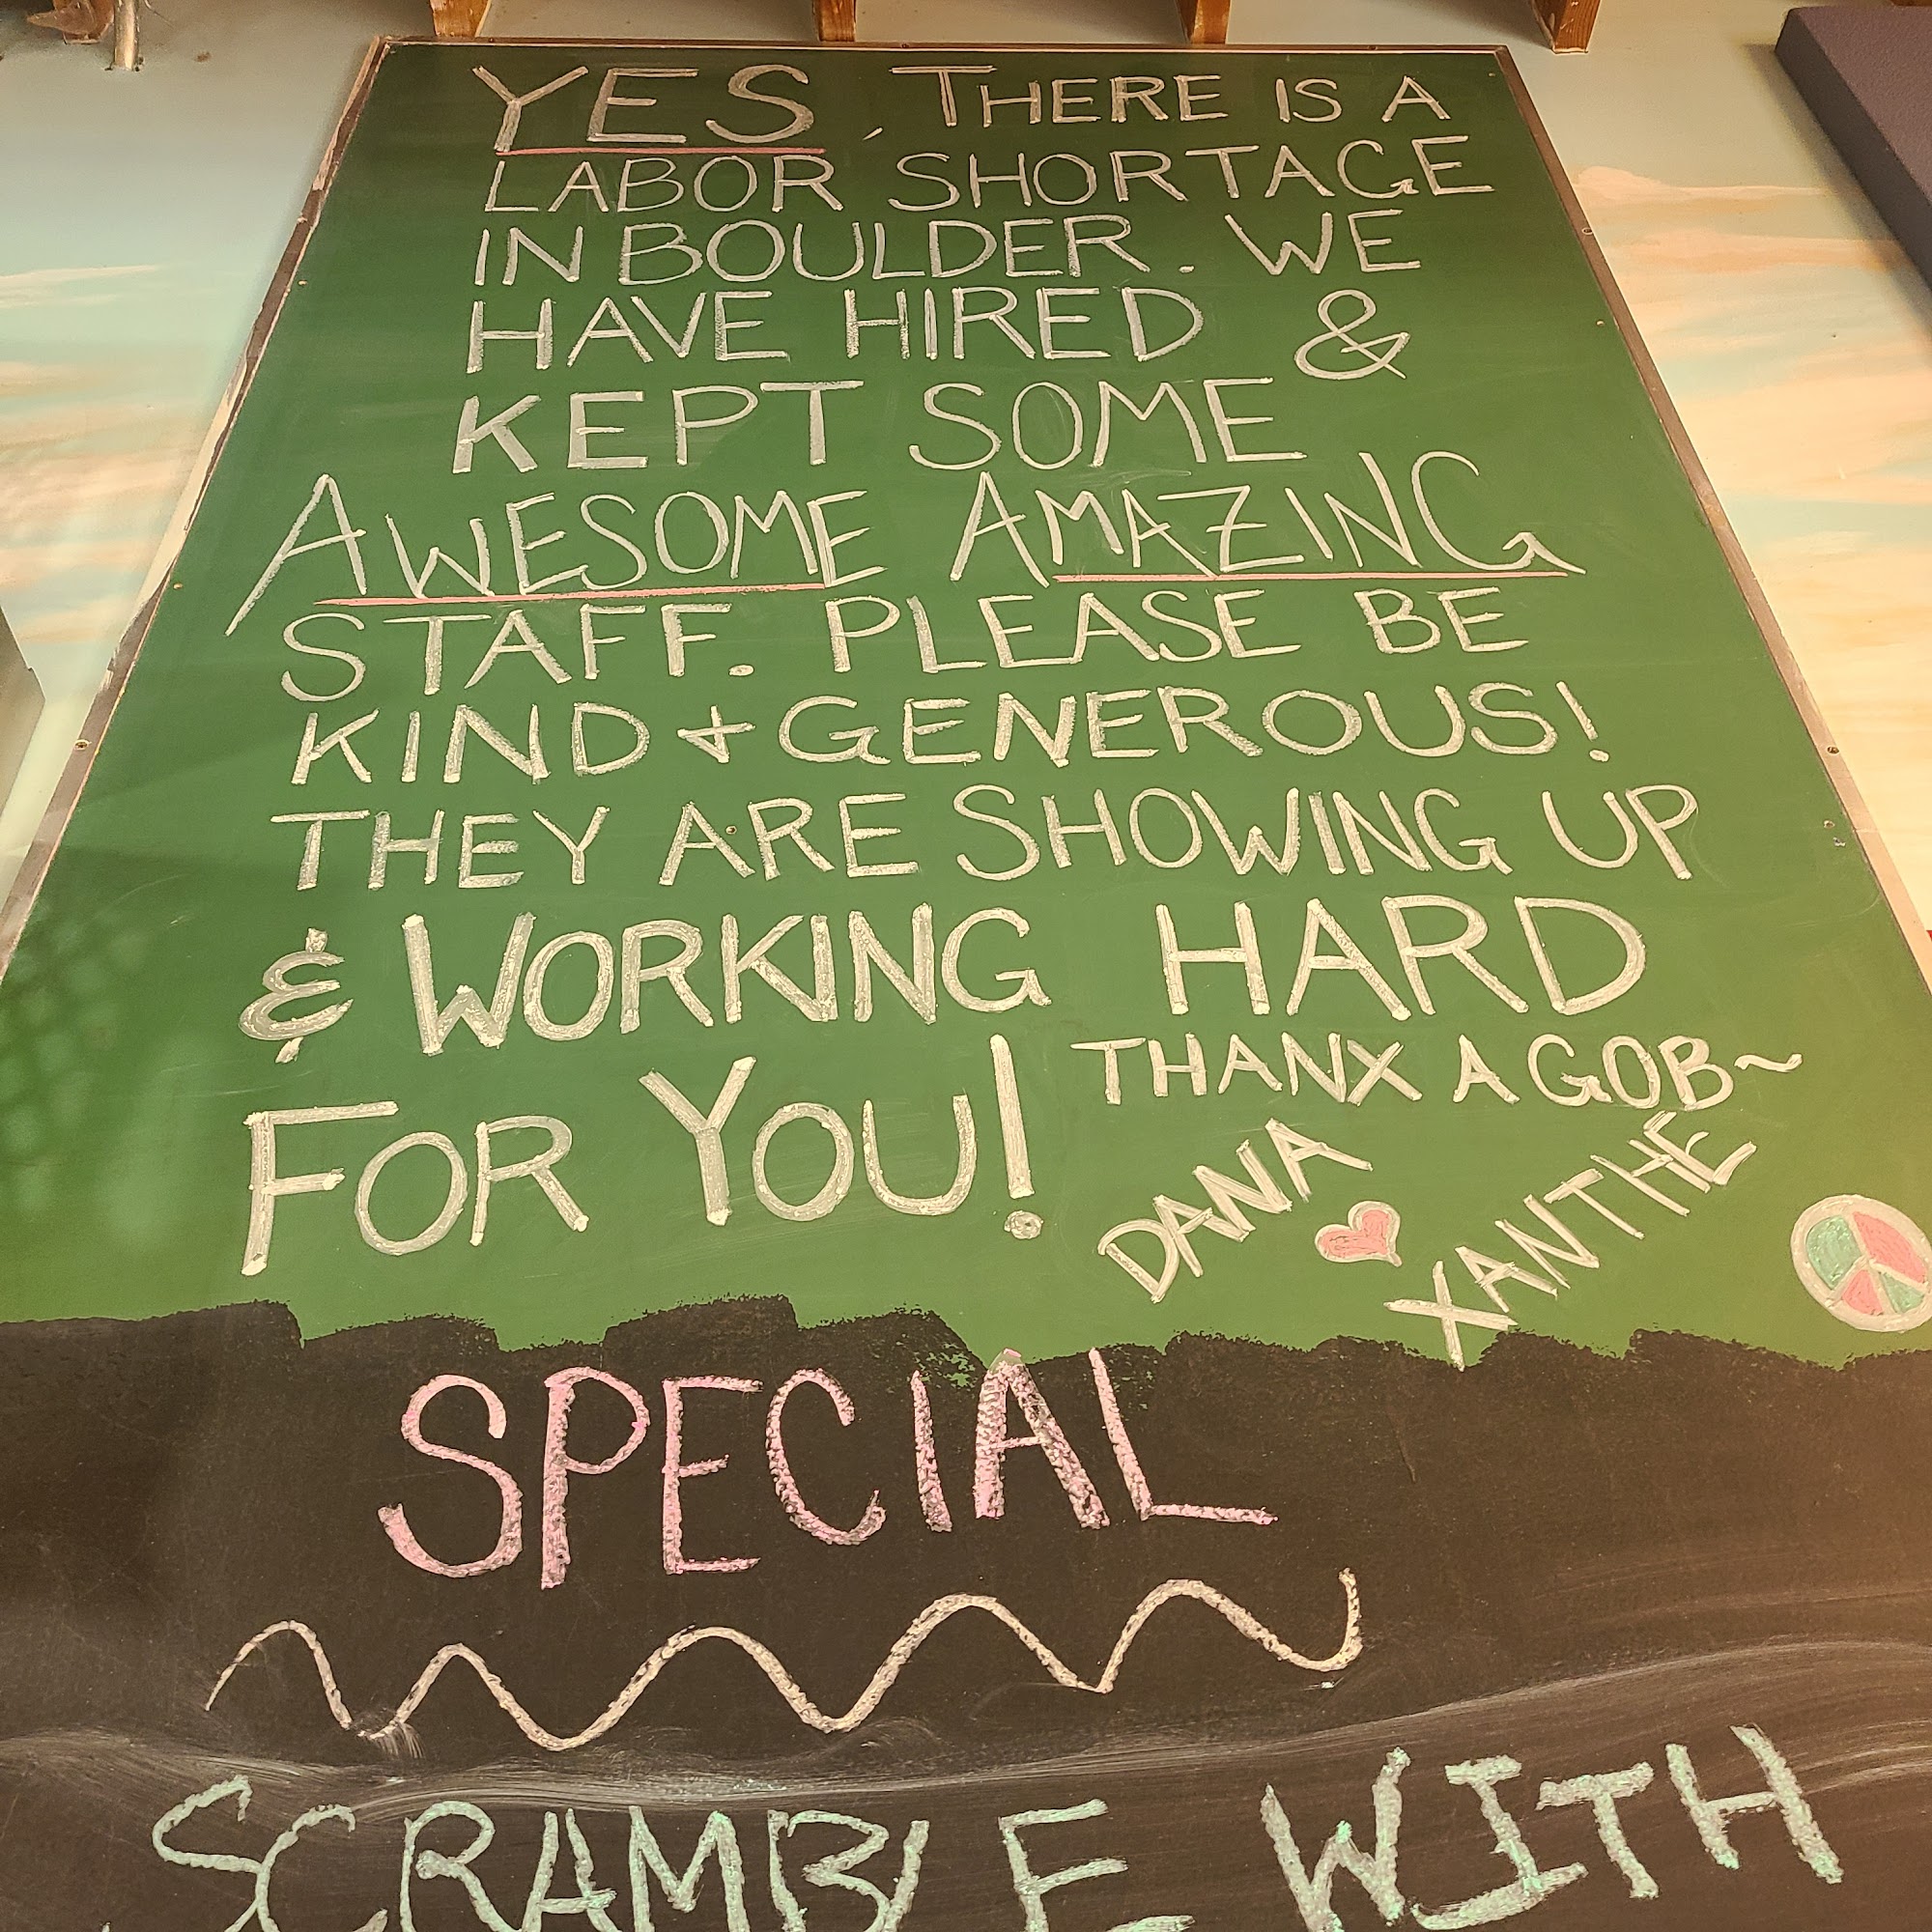 YES, THERE IS A
LABOR SHORTAGE
IN BOULDER. WE
HAVE HIRED &
KEPT SOME
AWESOME AMAZING
STAFF. PLEASE BE
KIND + GENEROUS!
THEY ARE SHOWING UP
& WORKING HARD
FOR YOU!
THANX A GOB~
DANA
XANTHE
SPECIAL
SCRAMBLE WITH